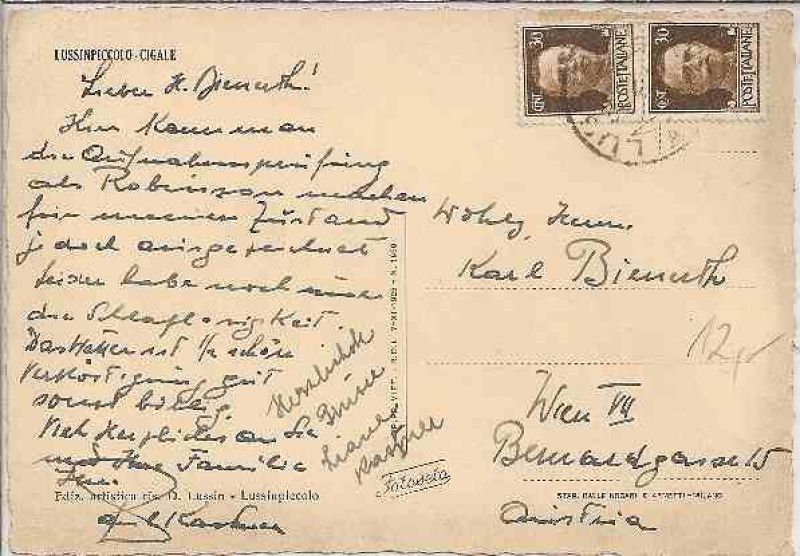 LUSSINPICCOLO - CIGALE
Lieber H. Bienerth!
Hier kann man
die Aufnahmsprüfung
als Robinson machen
für meinen Zustand
jedoch ausgezeichnet
Leider habe noch immer
die Schlaflosigkeit.
Das Wetter ist ½ schön
Verköstigung gut
sonst billig.
Viele Herzliches an Sie
und Ihre Familie
Ihr
Kastner
Herzlichste
Grüsse
Liane
Kastner
Ediz. artistica ris. D. Lussin - Lussinpiccolo
Fotoseta
CENT 30
POSTE ITALIANE
CENT 30
POSTE ITALIANE
LUS
Wohlg. Herrn
Karl Bienerth
12
Wien VII
Bernardgasse 15
Austria
STAB. DALLE NOGARE E ARMETTI - MILANO